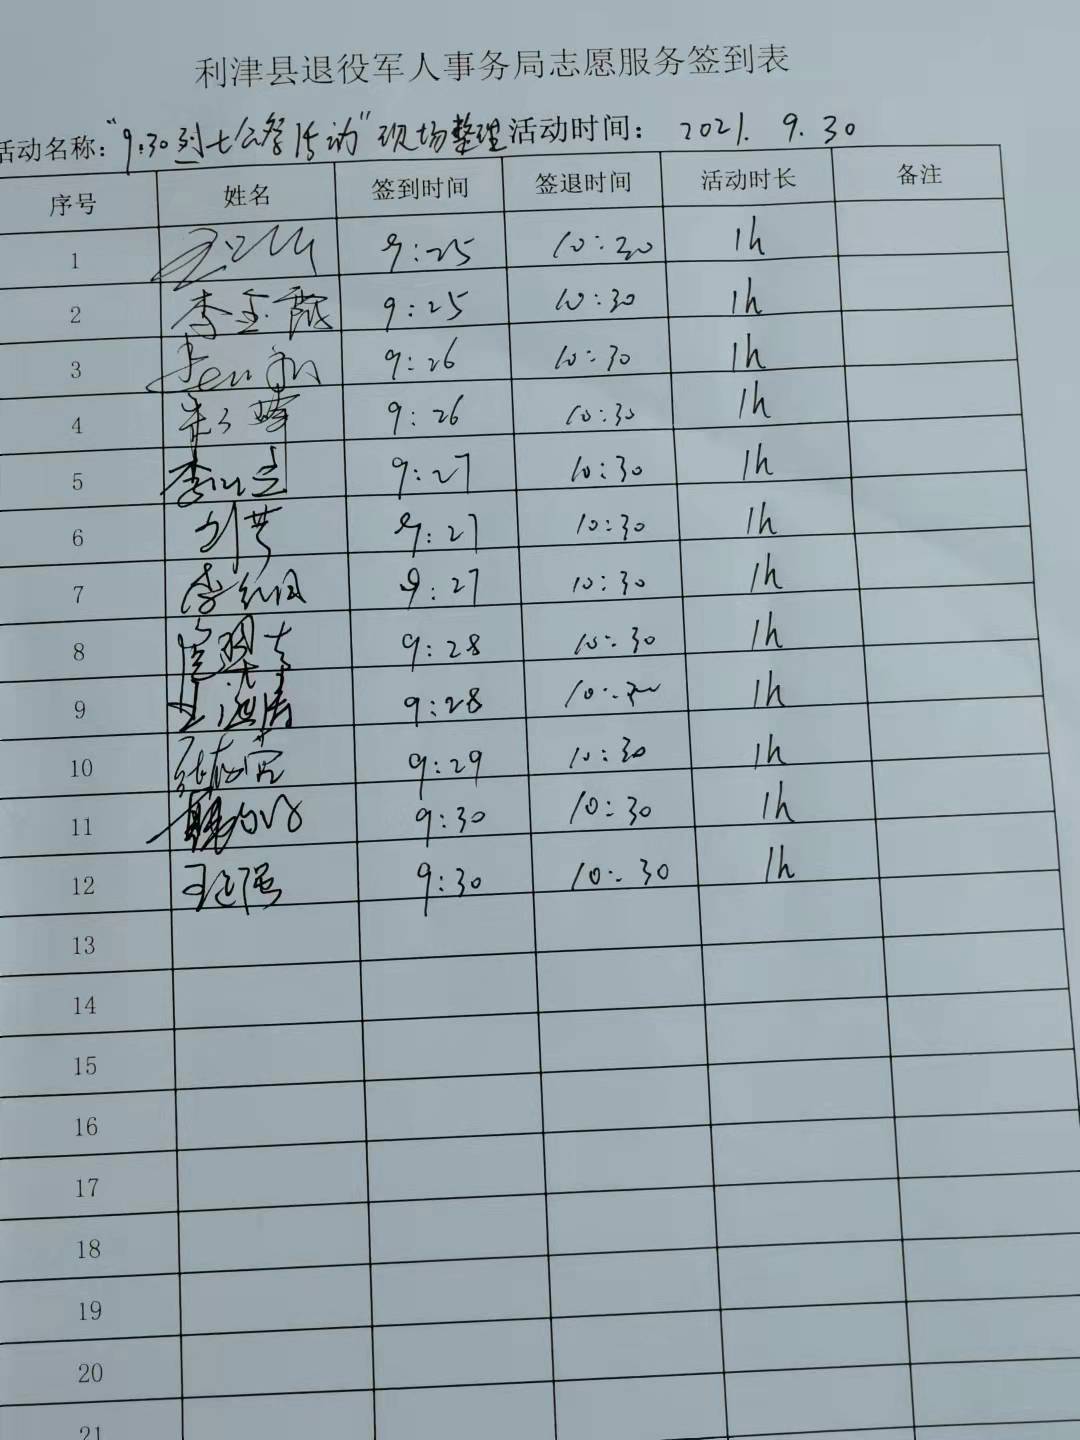 利津县退役军人事务局志愿服务签到表
活动名称："9:30烈士公祭活动"现场整理 活动时间： 2021. 9. 30
序号 姓名 签到时间 签退时间 活动时长 备注
1 9:25 10:30 1h
2 李金霞 9:25 10:30 1h
3 9:26 10:30 1h
4 9:26 10:30 1h
5 9:27 10:30 1h
6 9:27 10:30 1h
7 9:27 10:30 1h
8 9:28 10:30 1h
9 9:28 10:30 1h
10 9:29 10:30 1h
11 9:30 10:30 1h
12 9:30 10:30 1h
13
14
15
16
17
18
19
20
21